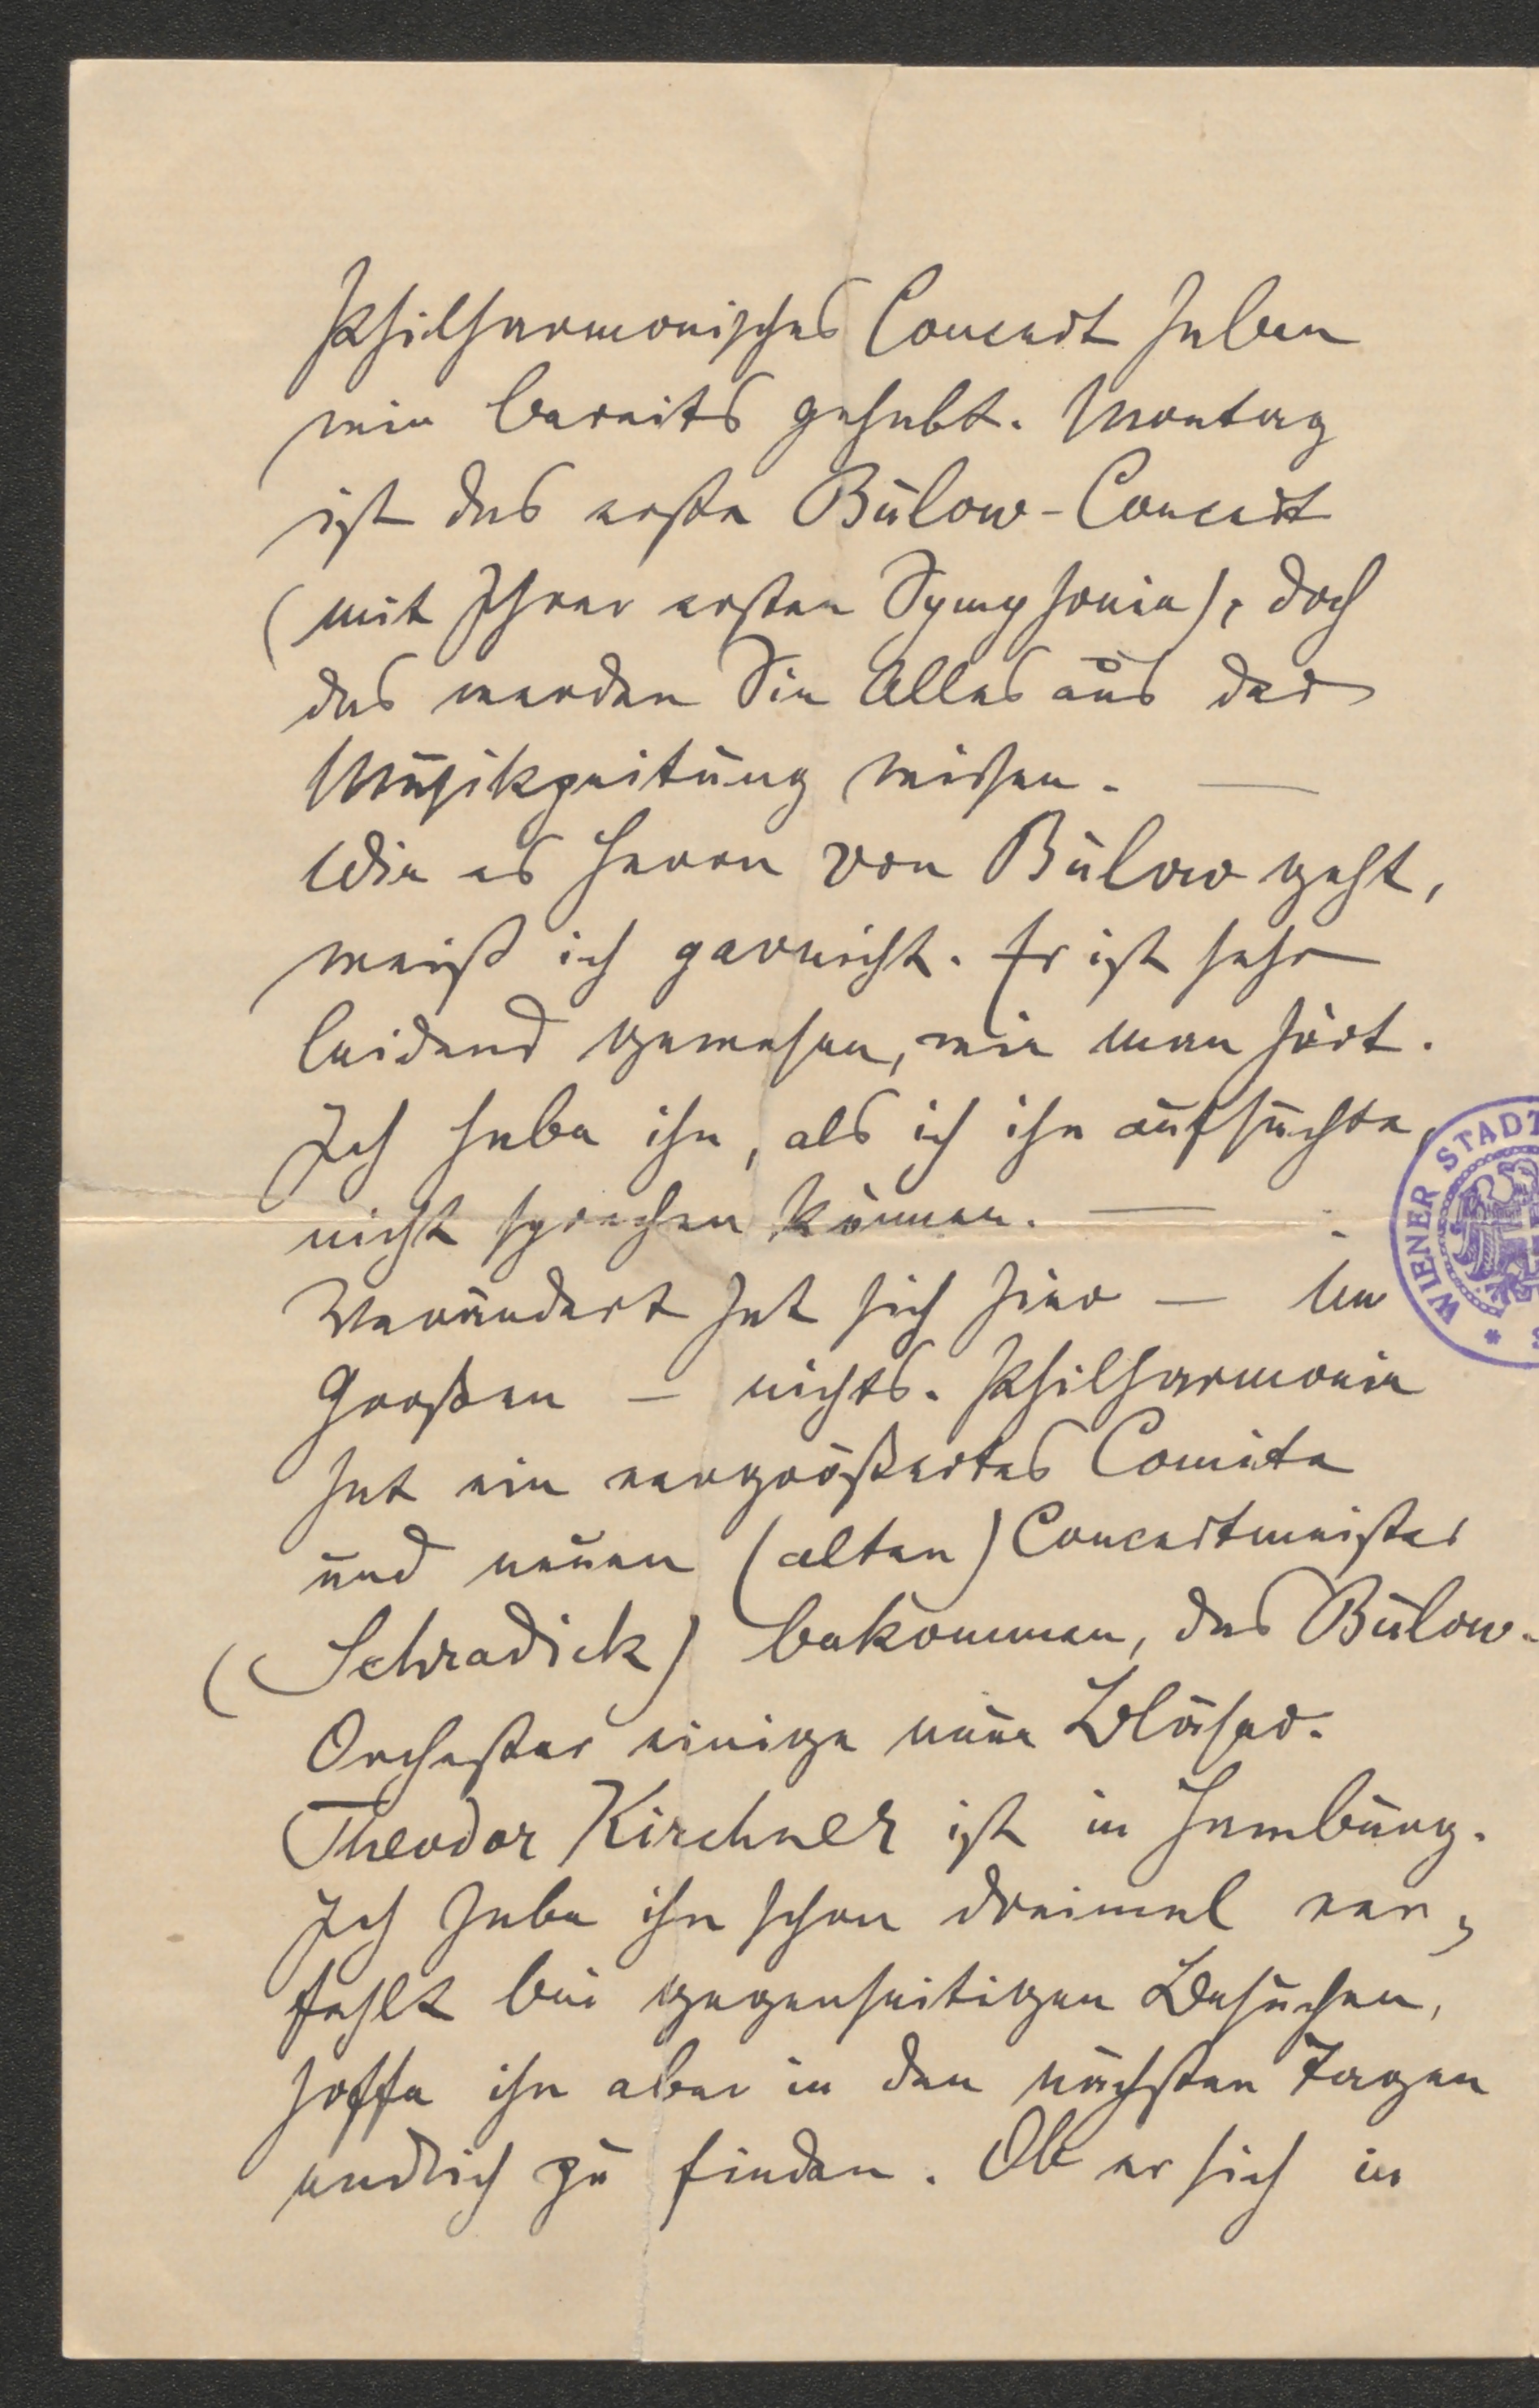 Philharmonisches Concert haben
wir bereits gehabt. Montag
ist das erste Bülow-Concert
(mit Ihrer ersten Symphonie), doch
das werden Sie Alles aus der
Musikzeitung wissen. —
Wie es Herrn von Bülow geht,
weiß ich garnicht. Er ist sehr
leidend gewesen, wie man hört.
Ich habe ihn, als ich ihn aufsuchte,
nicht sprechen können. —
Verändert hat sich hier — im
Großen — nichts. Philharmonie
hat ein vergrößertes Comite
und neuen (alten) Concertmeister
(Schradick) bekommen, das Bülow-
Orchester einige neue Bläser.
Theodor Kirchner ist in Hamburg.
Ich habe ihn schon dreimal ver-
fehlt bei gegenseitigen Besuchen,
hoffe ihn aber in den nächsten Tagen
endlich zu finden. Ob er sich in
WIENER STADT